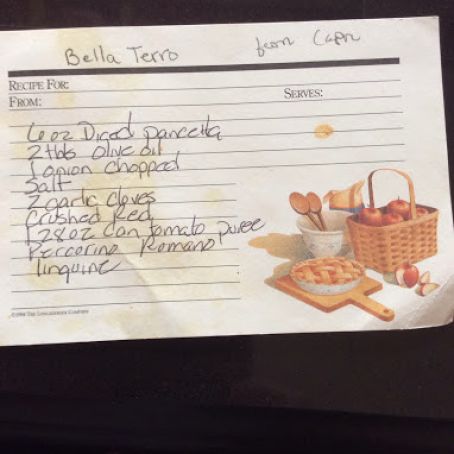 Bella Terro from Capri
RECIPE FOR:
FROM: SERVES:
6 oz Diced pancetta
2 tbs olive oil
1 onion chopped
Salt
2 garlic cloves
Crushed Red
1 28oz can tomato puree
Peccorino Romano
linguine